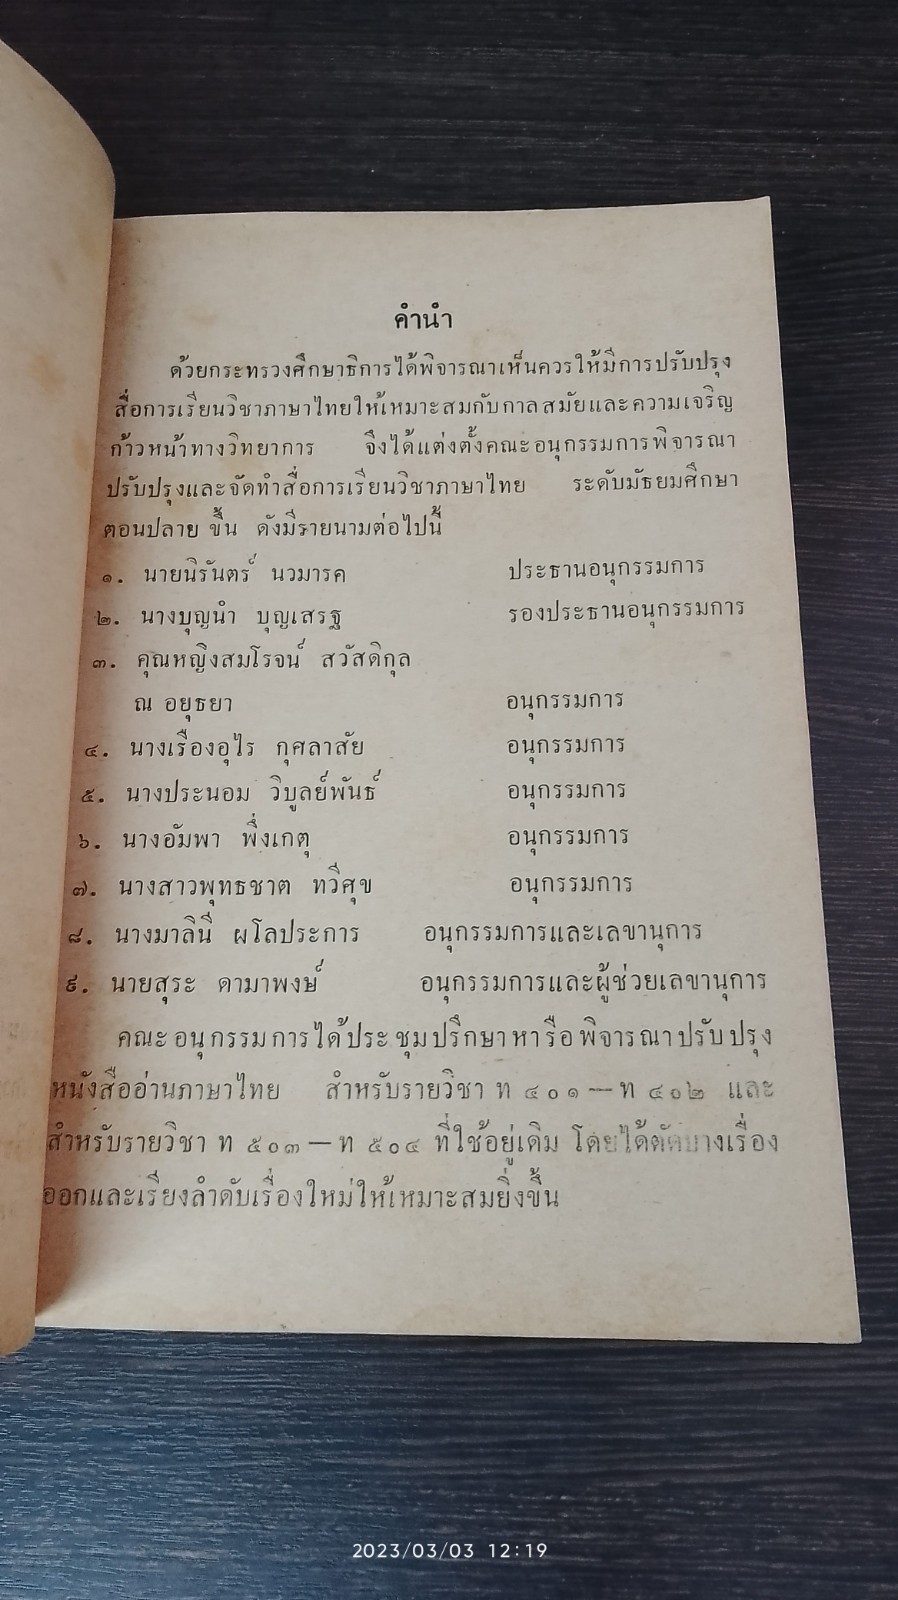 คำนำ
ด้วยกระทรวงศึกษาธิการได้พิจารณาเห็นควรให้มีการปรับปรุง
สื่อการเรียนวิชาภาษาไทยให้เหมาะสมกับกาลสมัยและความเจริญ
ก้าวหน้าทางวิทยาการ จึงได้แต่งตั้งคณะอนุกรรมการพิจารณา
ปรับปรุงและจัดทำสื่อการเรียนวิชาภาษาไทย ระดับมัธยมศึกษา
ตอนปลาย ขึ้น ดังมีรายนามต่อไปนี้
๑. นายนิรันตร์ นวมารค ประธานอนุกรรมการ
๒. นางบุญนำ บุญเสรฐ รองประธานอนุกรรมการ
๓. คุณหญิงสมโรจน์ สวัสดิกุล
ณ อยุธยา อนุกรรมการ
๔. นางเรืองอุไร กุศลาสัย อนุกรรมการ
๕. นางประนอม วิบูลย์พันธ์ อนุกรรมการ
๖. นางอัมพา พึ่งเกตุ อนุกรรมการ
๗. นางสาวพุทธชาต ทวีศุข อนุกรรมการ
๘. นางมาลินี ผโลประการ อนุกรรมการและเลขานุการ
๙. นายสุระ ดามาพงษ์ อนุกรรมการและผู้ช่วยเลขานุการ
คณะอนุกรรมการได้ประชุมปรึกษาหารือพิจารณาปรับปรุง
หนังสืออ่านภาษาไทย สำหรับรายวิชา ท ๔๐๑—ท ๔๐๒ และ
สำหรับรายวิชา ท ๕๐๓—ท ๕๐๔ ที่ใช้อยู่เดิม โดยได้ตัดบางเรื่อง
ออกและเรียงลำดับเรื่องใหม่ให้เหมาะสมยิ่งขึ้น
2023/03/03 12:19